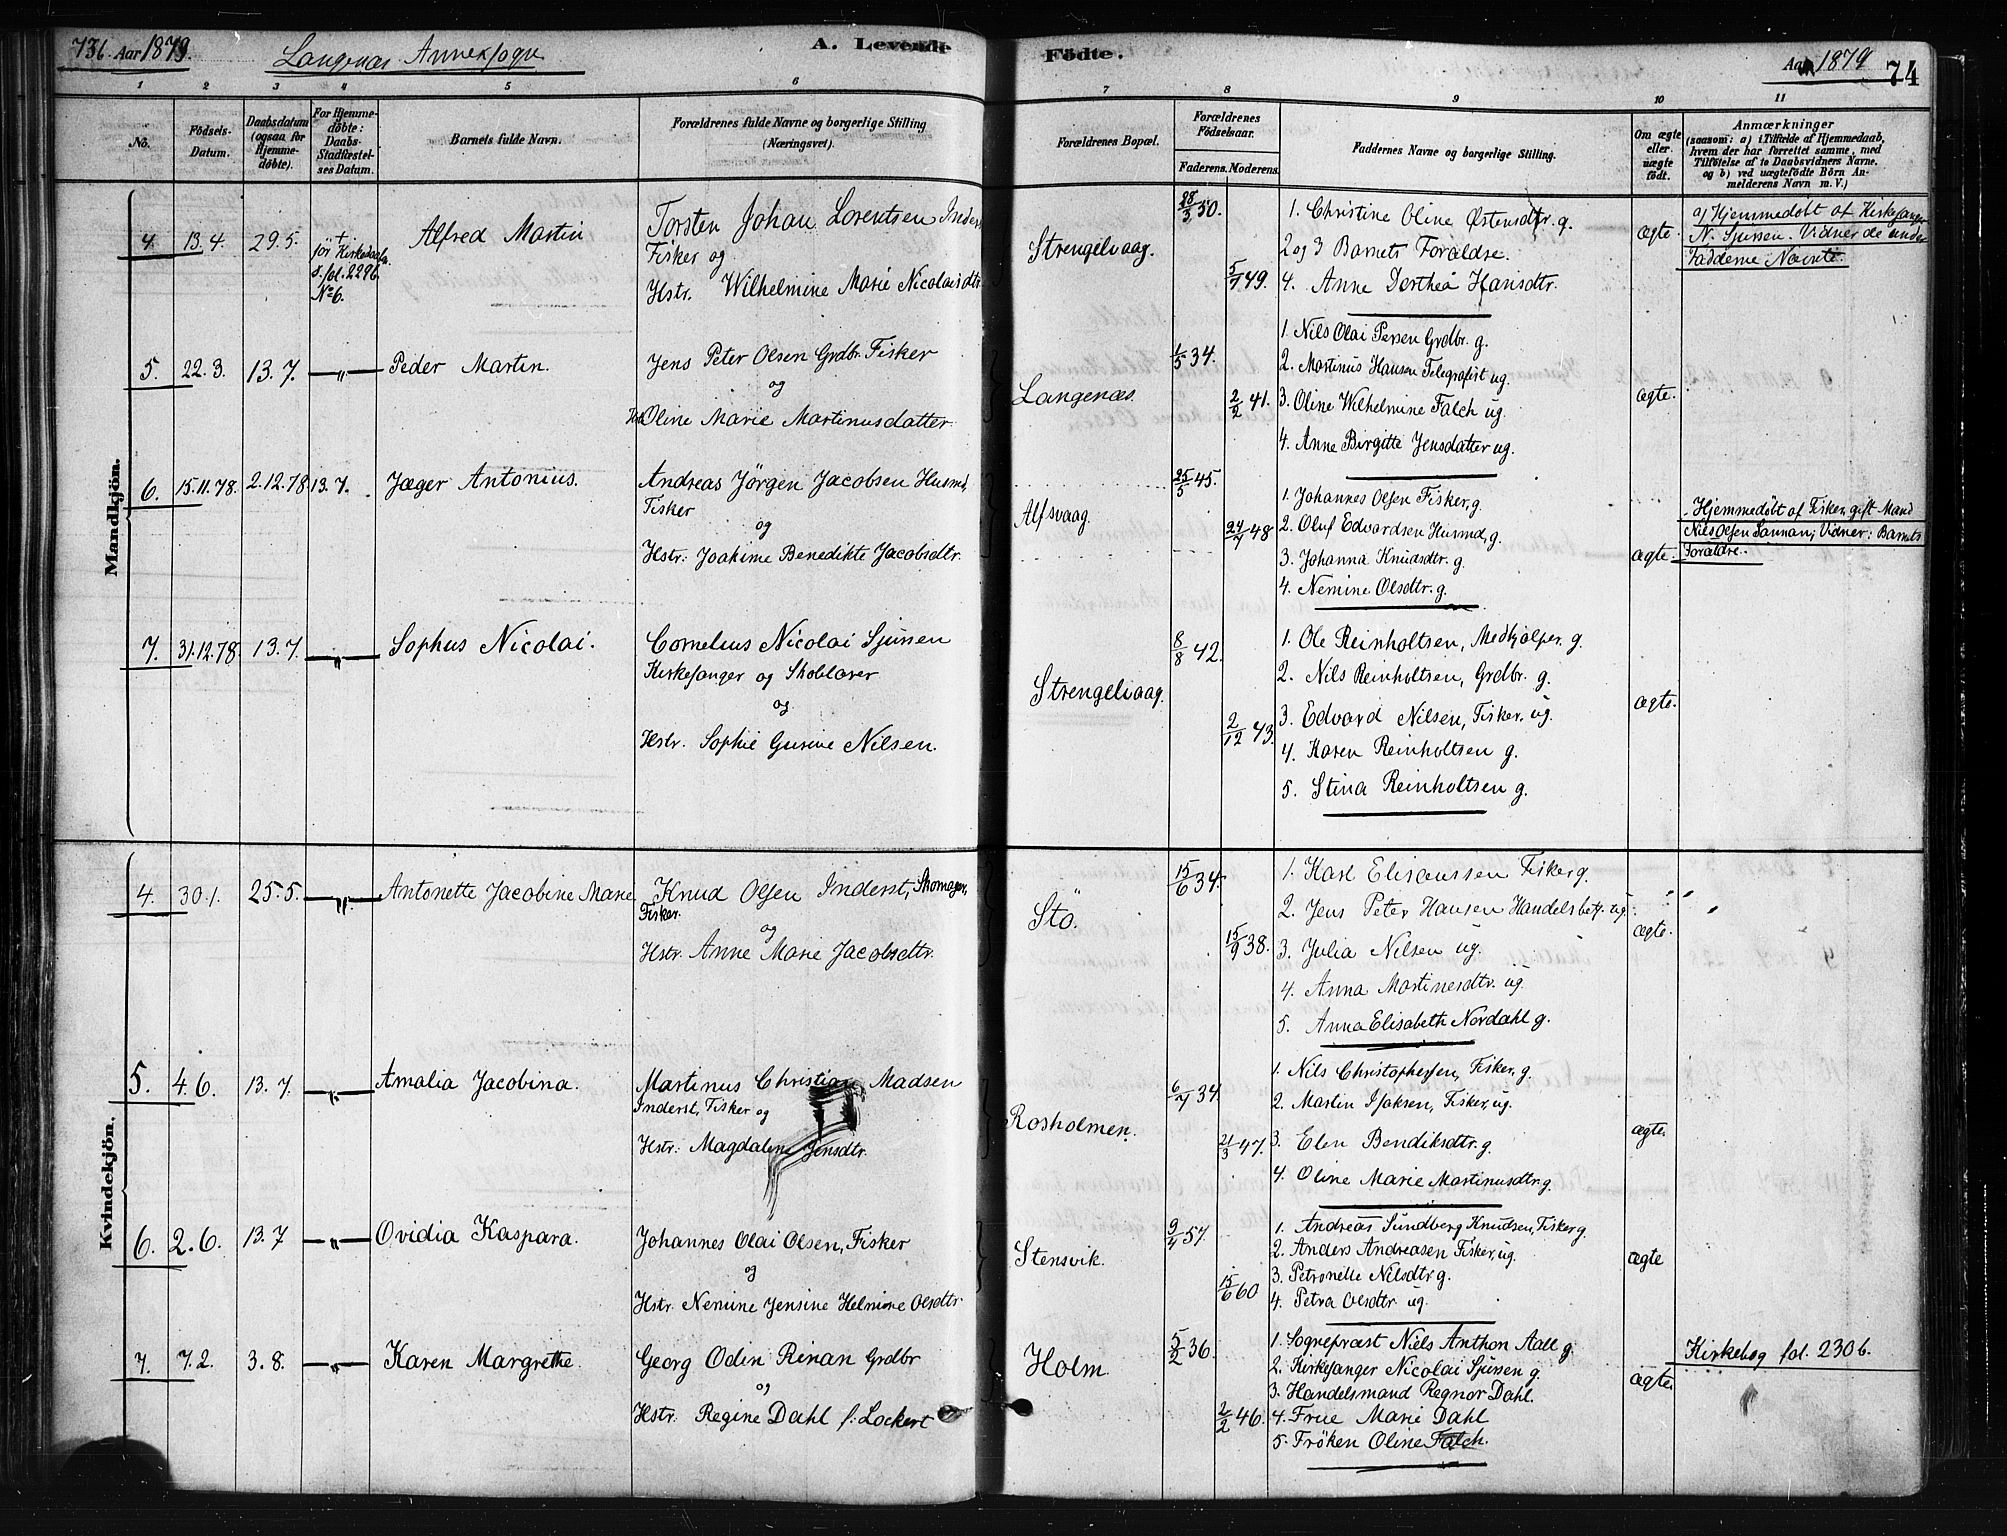 736. Aar 1879. Langenæs Annexsogn A. Levende Födte. Aar 1879 74
1 2 3 4 5 6 7 8 9 10 11
No. Födsels-Datum. Daabsdatum (ogsaa for Hjemme-döbte). For Hjemme-döbte: Daabs-Stadfæstel-ses Datum. Barnets fulde Navn. Forældrenes fulde Navne og borgerlige Stilling (Næringsvei). Forældrenes Bopæl. Forældrenes Födselsaar. Faderens. Moderens. Faddernes Navne og borgerlige Stilling. Om ægte eller uægte födt. Anmærkninger (saasom: a) i Tilfælde af Hjemmedaab, hvem der har forrettet samme, med Tilföielse af to Daabsvidners Navne, og b) ved uægtefödte Börn An-melderens Navn m. V.)
Mandkjön.
4. 13.4. 29.5. + før Kirkedaaben s. fol. 229b. No 6. Alfred Martin
Torsten Johan Lorentsen Inderst
Fisker og
Hstr. Wilhelmine Marie Nicolaisdtr.
Strengelvaag. 28/3 50. 5/7 49.
1. Christine Oline Østensdtr. g.
2 og 3 Barnets Forældre.
4. Anne Dorthea Hansdtr.
ægte.
a) Hjemmedøbt af Kirkesanger
N. Sjursen. Vidner de under
Fadderne Nævnte.
5. 22.3. 13.7. —„— Peder Martin.
Jens Peter Olsen Grdbr. Fisker
og
Hstr. Oline Marie Martinusdatter
Langenæs. 1/5 34. 2/2 41.
1. Nils Olai Persen Grdbr. g.
2. Martinus Hansen Telegrafist ug.
3. Oline Wilhelmine Falch ug.
4. Anne Birgitte Jensdatter ug.
ægte.
6. 15.11.78. 2.12.78 13.7. Jæger Antonius.
Andreas Jørgen Jacobsen Husmd,
Fisker
og
Hstr: Joakime Benedikte Jacobsdtr.
Alfsvaag. 25/5 45. 24/7 48
1. Johannes Olsen Fisker, g.
2. Oluf Edvardsen Husmd, g.
3. Johanna Knudsdtr. g.
4. Nemine Olsdtr. g.
ægte.
Hjemmedøbt af Fisker, gift Mand
Nils Olsen Sannan; Vidner: Barnets
Forældre.
7. 31.12.78. 13.7. —„— Sophus Nicolai.
Cornelius Nicolai Sjursen
Kirkesanger og Skolelærer
og
Hstr. Sophie Gurine Nilsen.
Strengelvaag. 8/8 42. 2/12 43.
1. Ole Reinholtsen, Medhjælper. g.
2. Nils Reinholtsen, Grdbr. g.
3. Edvard Nilsen, Fisker. ug.
4. Karen Reinholtsen g.
5. Stina Reinholtsen g.
ægte.
Kvindekjön.
4. 30.1. 25.5. —„— Antonette Jacobine Marie
Knud Olsen Inderst, Skomager,
Fisker.
og
Hstr. Anne Marie Jacobsdtr.
Stö. 15/6 34. 15/9 38.
1. Karl Elisæussen Fisker g.
2. Jens Peter Hansen Handelsbetj. ug.
3. Julia Nilsen ug.
4. Anna Martinesdtr. ug.
5. Anna Elisabeth Nordahl g.
ægte.
5. 4.6. 13.7. —„— Amalia Jacobina.
Martinus Christian Madsen
Inderst, Fisker og
Hstr: Magdalene Jensdtr.
Rosholmen. 6/7 34. 21/3 47.
1. Nils Christophersen, Fisker, g.
2. Martin Isaksen, Fisker, ug.
3. Elen Bendiksdtr. g.
4. Oline Marie Martinusdtr. g.
ægte.
6. 2.6. 13.7 —„— Ovidia Kaspara.
Johannes Olai Olsen, Fisker
og
Hstr. Nemine Jensine Helmine Olsdtr.
Stensvik. 9/4 57. 15/6 60
1. Andreas Sundberg Knudsen, Fisker g.
2. Anders Andreasen Fisker, ug.
3. Petronelle Nilsdtr g.
4. Petra Olsdtr ug.
ægte
7. 7.2. 3.8. —„— Karen Margrethe.
Georg Odin Rinan Grdbr
og
Hstr. Regine Dahl f. Lockert
Holm. 5/2 36. 2/2 46.
1. Sognepræst Niels Anthon Aall g.
2. Kirkesanger Nicolai Sjursen g.
3. Handelsmand Regnor Dahl.
4. Frue Marie Dahl
5. Frøken Oline Falch.
ægte
Kirkebog fol. 230b.